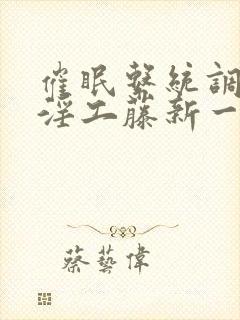 催眠繫統調
淫工藤新一
蔡藝偉